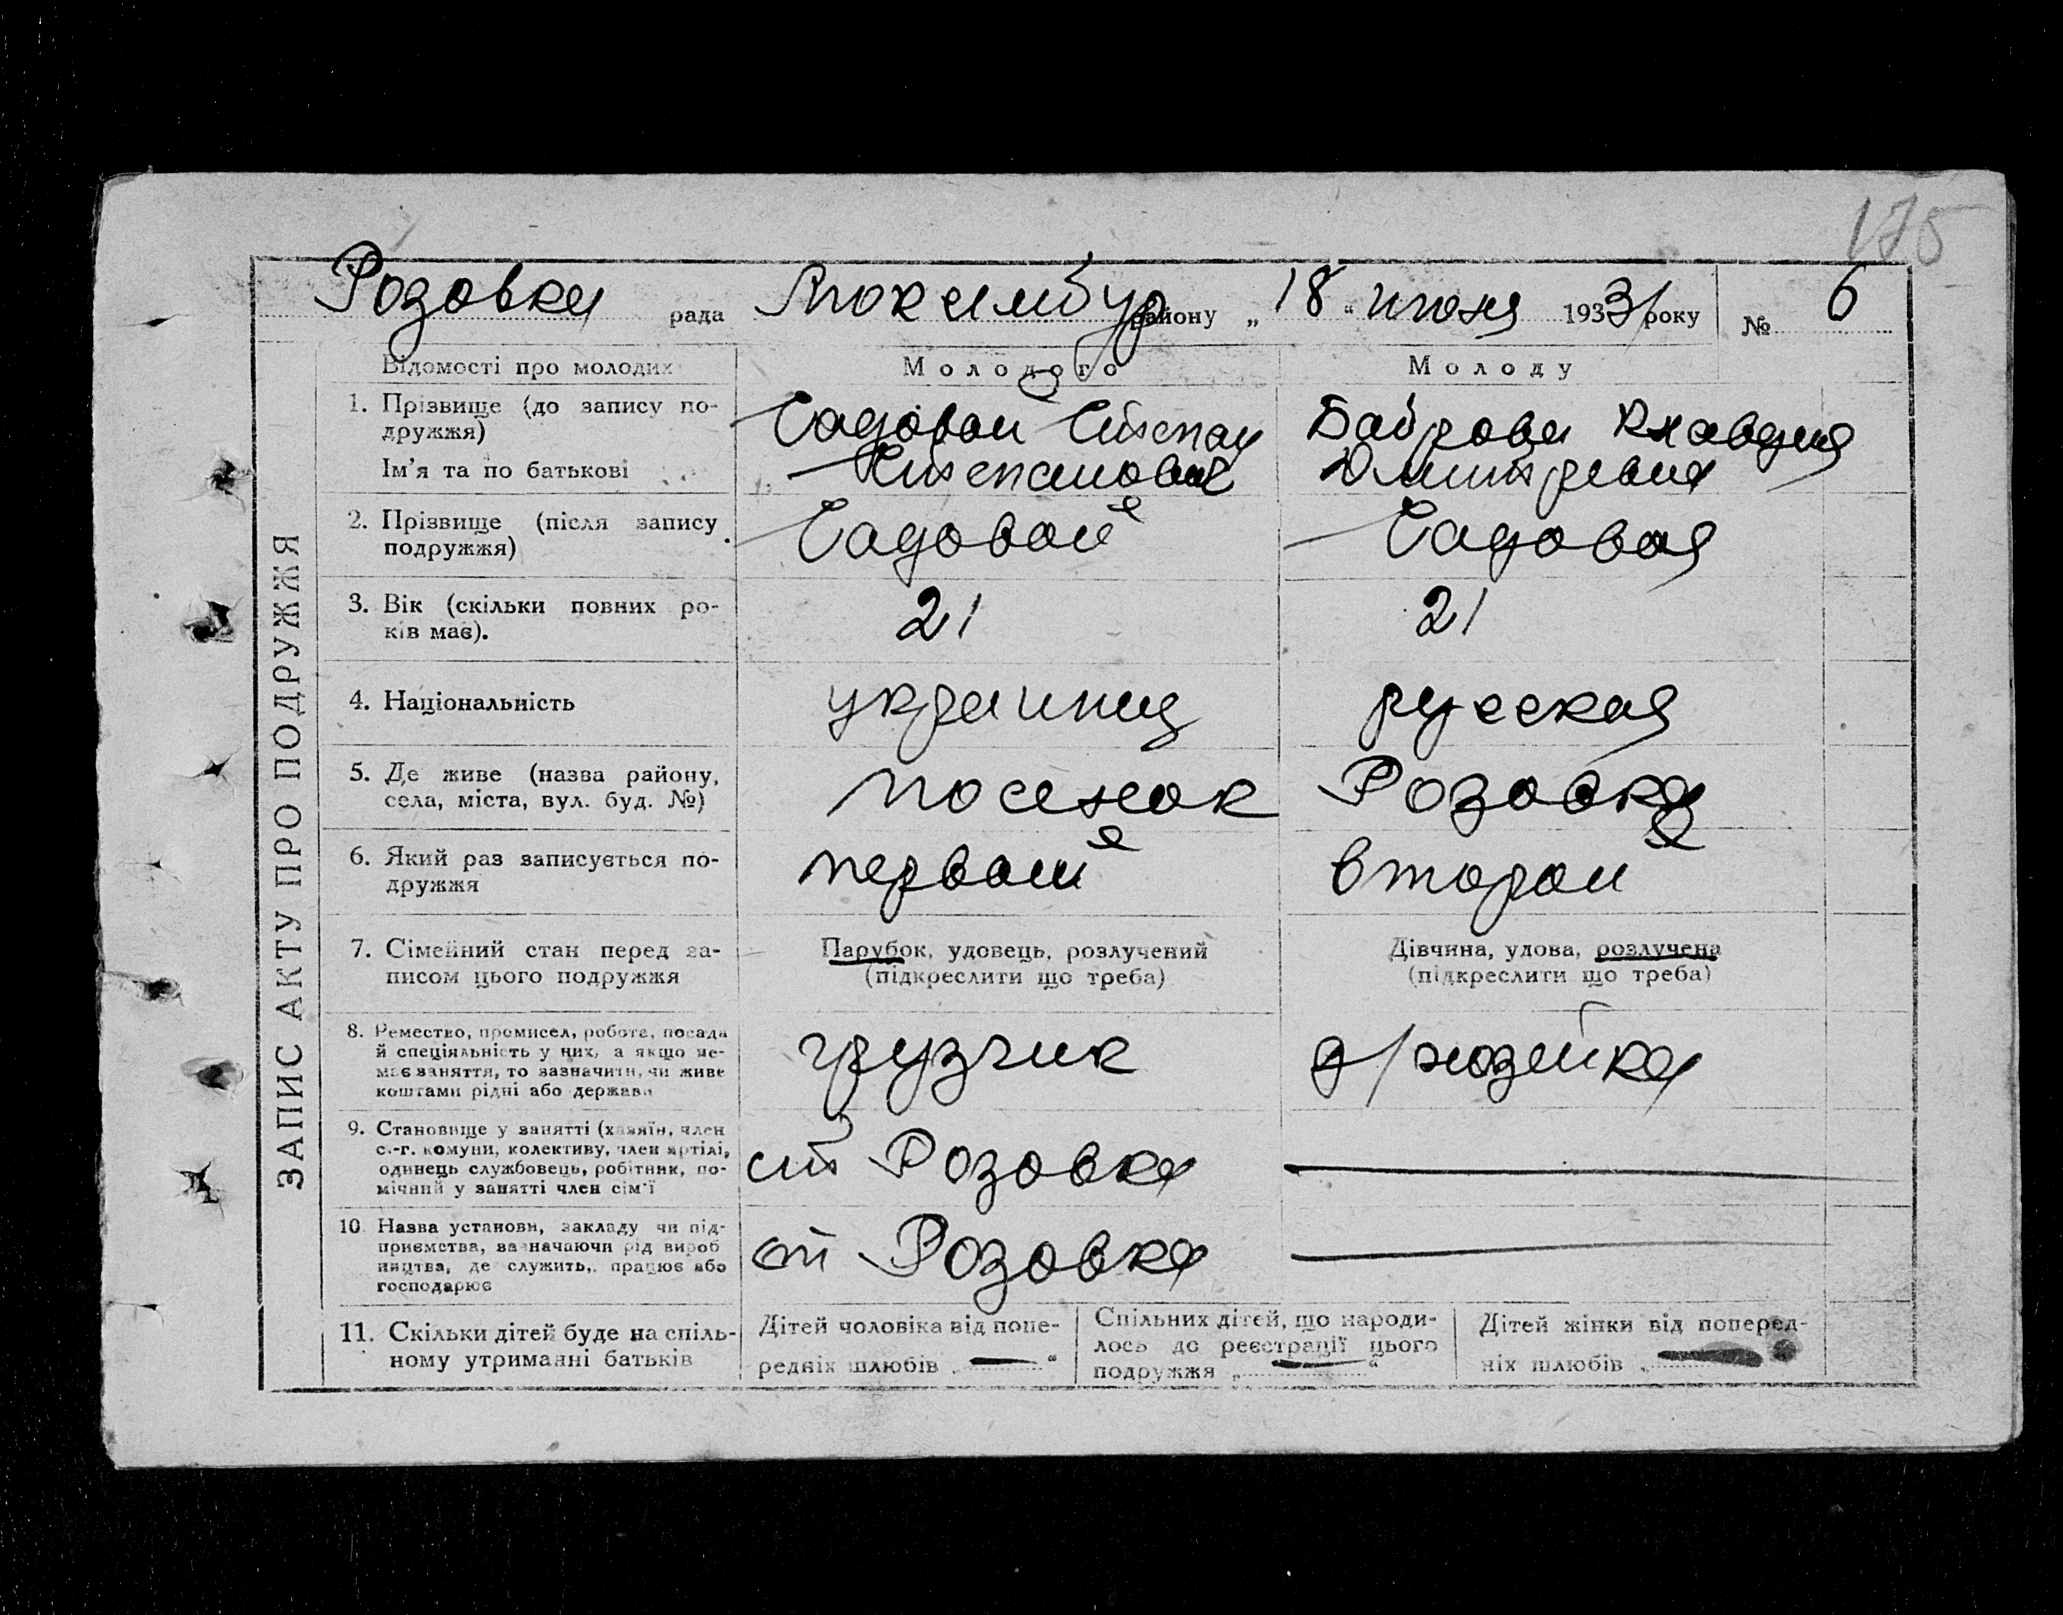 175
Розовка рада Люксембур району „18“ июня 1933 року № 6
Відомості про молодих Молодого Молоду
1. Прізвище (до запису по- Садовой Степан Баброва Клавдия
дружжя)
Ім’я та по батькові Степанович Дмитревна
2. Прізвище (після запису Садовой Садовая
подружжя)
3. Вік (скільки повних ро- 21 21
ків має).
4. Національність украинец русская
5. Де живе (назва району, Розовка
села, міста, вул. буд. №)
6. Який раз записується по- первый второй
дружжя
7. Сімейний стан перед за- Парубок, удовець, розлучений Дівчина, удова, розлучена
писом цього подружжя (підкреслити що треба) (підкреслити що треба)
8. Ремество, промисел, робота, посада грузчик д/хозейка
й спеціяльність у них, а якщо не-
має заняття, то зазначити, чи живе
коштами рідні або держави
9. Становище у занятті (хазяїн, член ст Розовка
с.-г. комуни, колективу, член артілі,
одинець службовець, робітник, по-
мічний у занятті член сім’ї
10. Назва установи, закладу чи під- ст Розовка
приємства, зазначаючи рід вироб
ництва, де служить, працює або
господарює
11. Скільки дітей буде на спіль- Дітей чоловіка від попе- Спільних дітей, що народи- Дітей жінки від поперед-
ному утриманні батьків редніх шлюбів „—“ лось до реєстрації цього ніх шлюбів „—
подружжя „—“
ЗАПИС АКТУ ПРО ПОДРУЖЖЯ